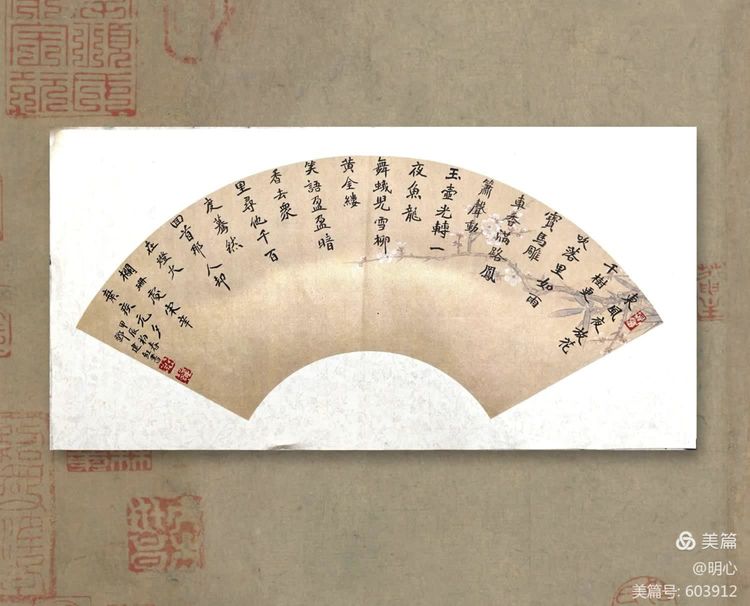 東風夜放花
千樹更
吹落星如雨
寶馬雕
車香滿路鳳
簫聲動
玉壺光轉一
夜魚龍
舞蛾兒雪柳
黄金縷
笑語盈盈暗
香去衆
里尋他千百
度驀然
回首那人却
在燈火
欄珊處宋辛
棄疾元夕
甲辰初春
鄧建書
美篇
@明心
美篇号: 603912